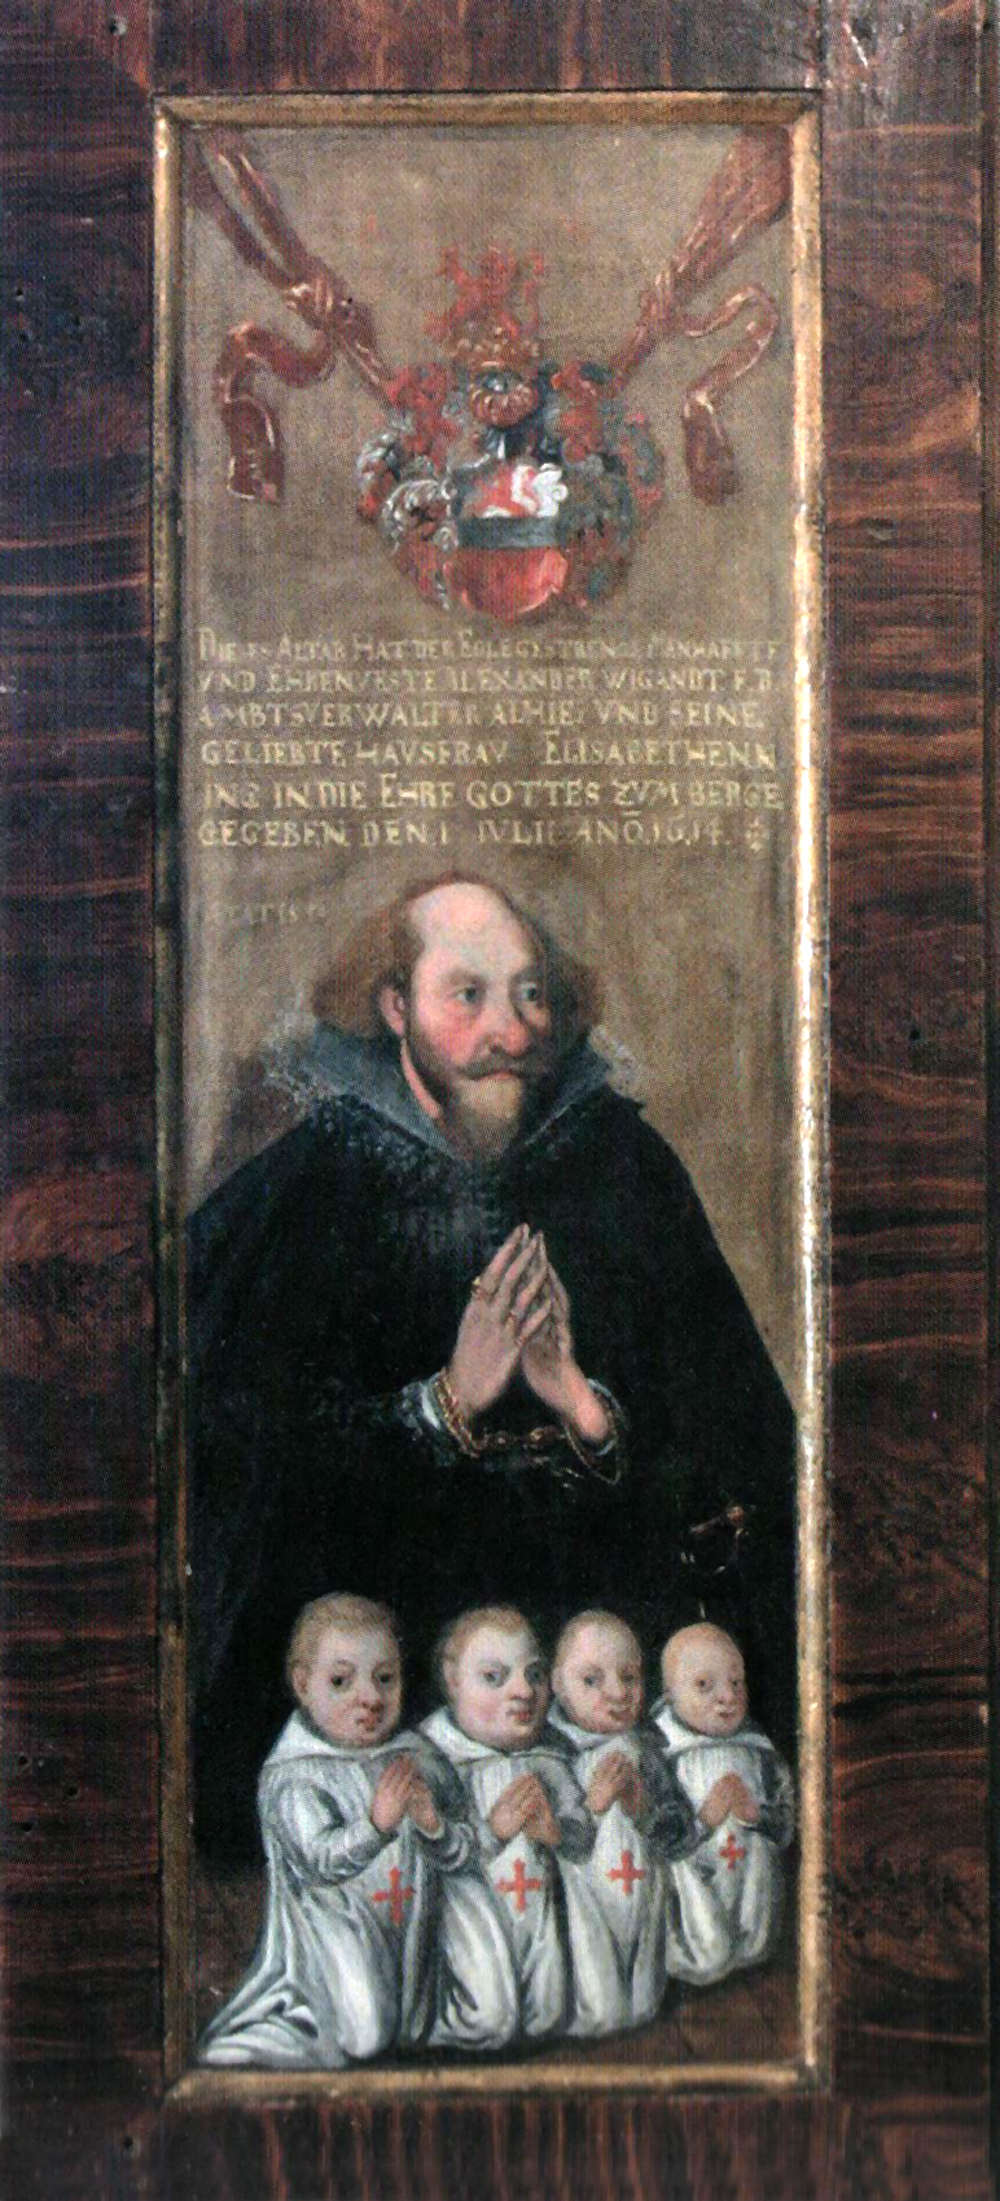 DIESES ALTAR HAT DER EDLE GESTRENGE MANHAFFTE
VND EHRENVESTE ALEXANDER WIGANDT F. B.
AMBTSVERWALTER ALHIER VND SEINE
GELIEBTE HAVSFRAV ELISABET HENN
ING IN DIE EHRE GOTTES ZVM BERGE
GEGEBEN DEN 1 IVLII ANŌ. 1614.
ÆTATIS